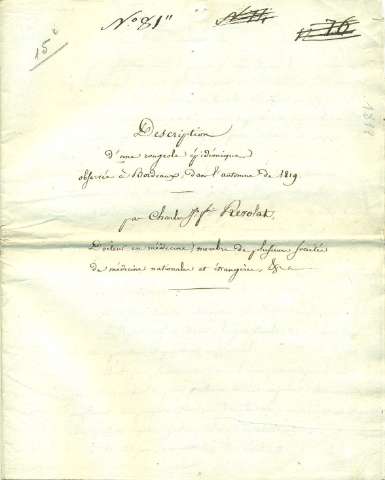 15 c
N° 81"
N° 76
1819
Description
d'une rougeole épidémique
observée à Bordeaux, dans l'automne de 1819.
par Charles
Docteur en médecine, membre de plusieurs sociétés
de médecine nationales et étrangères, &c